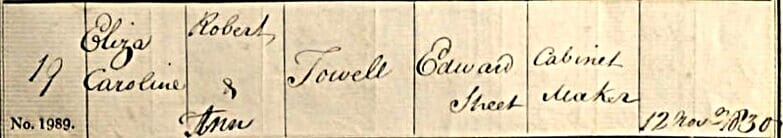 19
No. 1989.
Eliza
Caroline
Robert
&
Ann
Towell
Edward
Street
Cabinet
Maker
12 Novr 1830